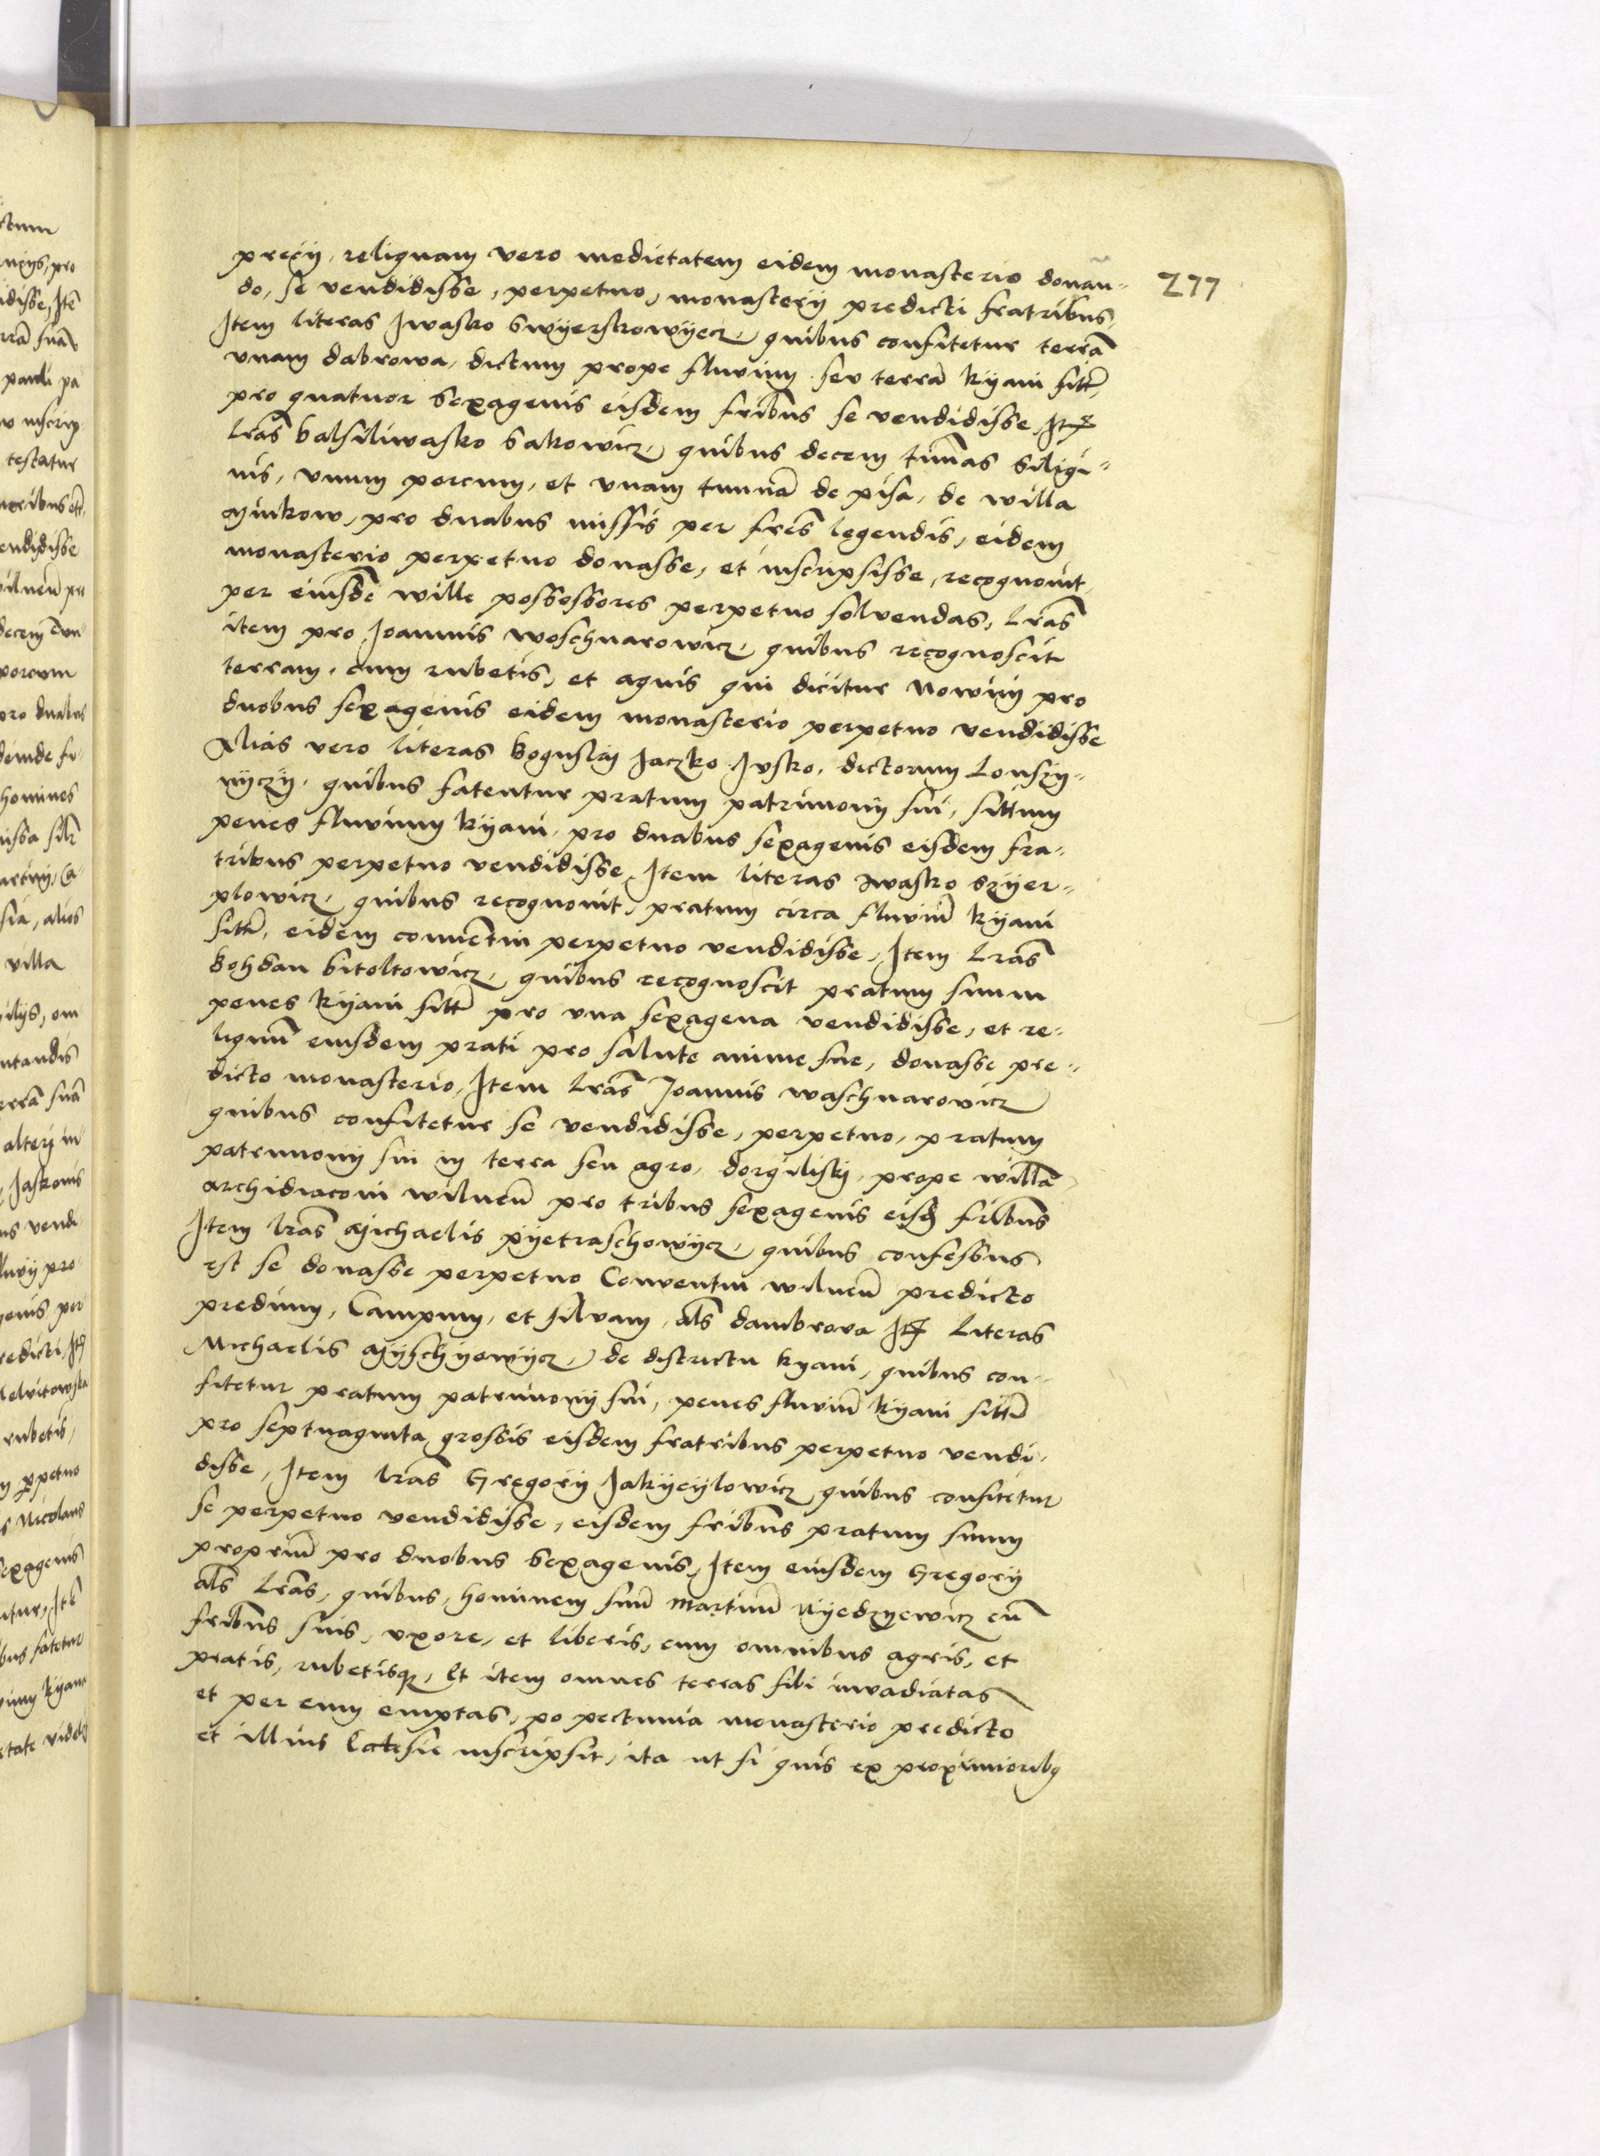 277
precij, reliquam vero medietatem eidem monasterio donan-
do, se vendidisse, perpetuo, monasterij predicti fratribus,
Item literas Jwasko Swÿerskowÿcz, quibus confitetur terrã
vnam dabrowa, dictum prope fluvium seu terrã Kÿani sittã,
pro quatuor sexagenis eisdem fribus se vendidisse, Itē
lras balsiliwasko Sakowicz, quibus decem tunnas siligi-
nis, vnum porcum, et vnam tunnã de pisa, de willa
Minkow, pro duabus missis per fres legendis, eidem
monasterio perpetuo donasse, et inscripsisse, recognouit,
per eiusdẽ wille possessores perpetuo solvendas, lras
item pro Joannis woschnarowicz, quibus recognoscit
terram, cum rubetis, et aquis qui dicitur Nowinÿ pro
duobus sexagenis eidem monasterio perpetuo vendidisse
Alias vero literas Boguslaj Jaczko Jvsko, dictorum Lonszy-
nÿczÿ, quibus fatentur pratum patrimonij sui, sittum
penes fluvium Kÿani, pro duabus sexagenis eisdem fra-
tribus perpetuo vendidisse, Item literas Jwasko Szÿer-
plowicz, quibus recognouit, pratum circa fluviũ Kÿani
sittũ, eidem conuẽtui perpetuo vendidisse, Item lras
Bohdan bitoltowicz, quibus recognoscit pratum suum
penes Kÿani sittũ pro vna sexagena vendidisse, et re-
liquũ eiusdem prati pro salute anime sue, donasse pre-
dicto monasterio, Item lras Joannis waschnarovicz
quibus confitetur se vendidisse, perpetuo, pratum
patrimonij sui in terra seu agro, dorgiliskj, prope willã
archidiaconi wilneñ pro tribus sexagenis eisđ fribus
Item lras Michaelis pÿetraschowÿcz, quibus confessus
est se donasse perpetuo Conventui wilneñ predicto
predium, Campum, et silvam, als dambrova Itē Literas
Michaelis Mÿschÿowÿcz, de districtu kyani, quibus con-
fitetur pratum patrimonij sui, penes fluviũ Kÿani sittũ
pro septuaginta grossis eisdem fratribus perpetuo vendi-
disse, Item lras Gregorij Jakÿcÿlowicz, quibus confitetur
se perpetuo vendidisse, eisdem fribus pratum suum
propriũ pro duobus sexagenis, Item eiusdem Gregorij
als lras, quibus, hominem suũ Martinũ Nÿedzÿewicz cũ
fribus suis, vxore, et liberis, cum omnibus agris, et
pratis, rubetisq, Et item omnes terras sibi invadiatas
et per eum emptas, po pectunia monasterio predicto
et illius Ecclesie inscripsit, ita ut si quis ex proximioribq